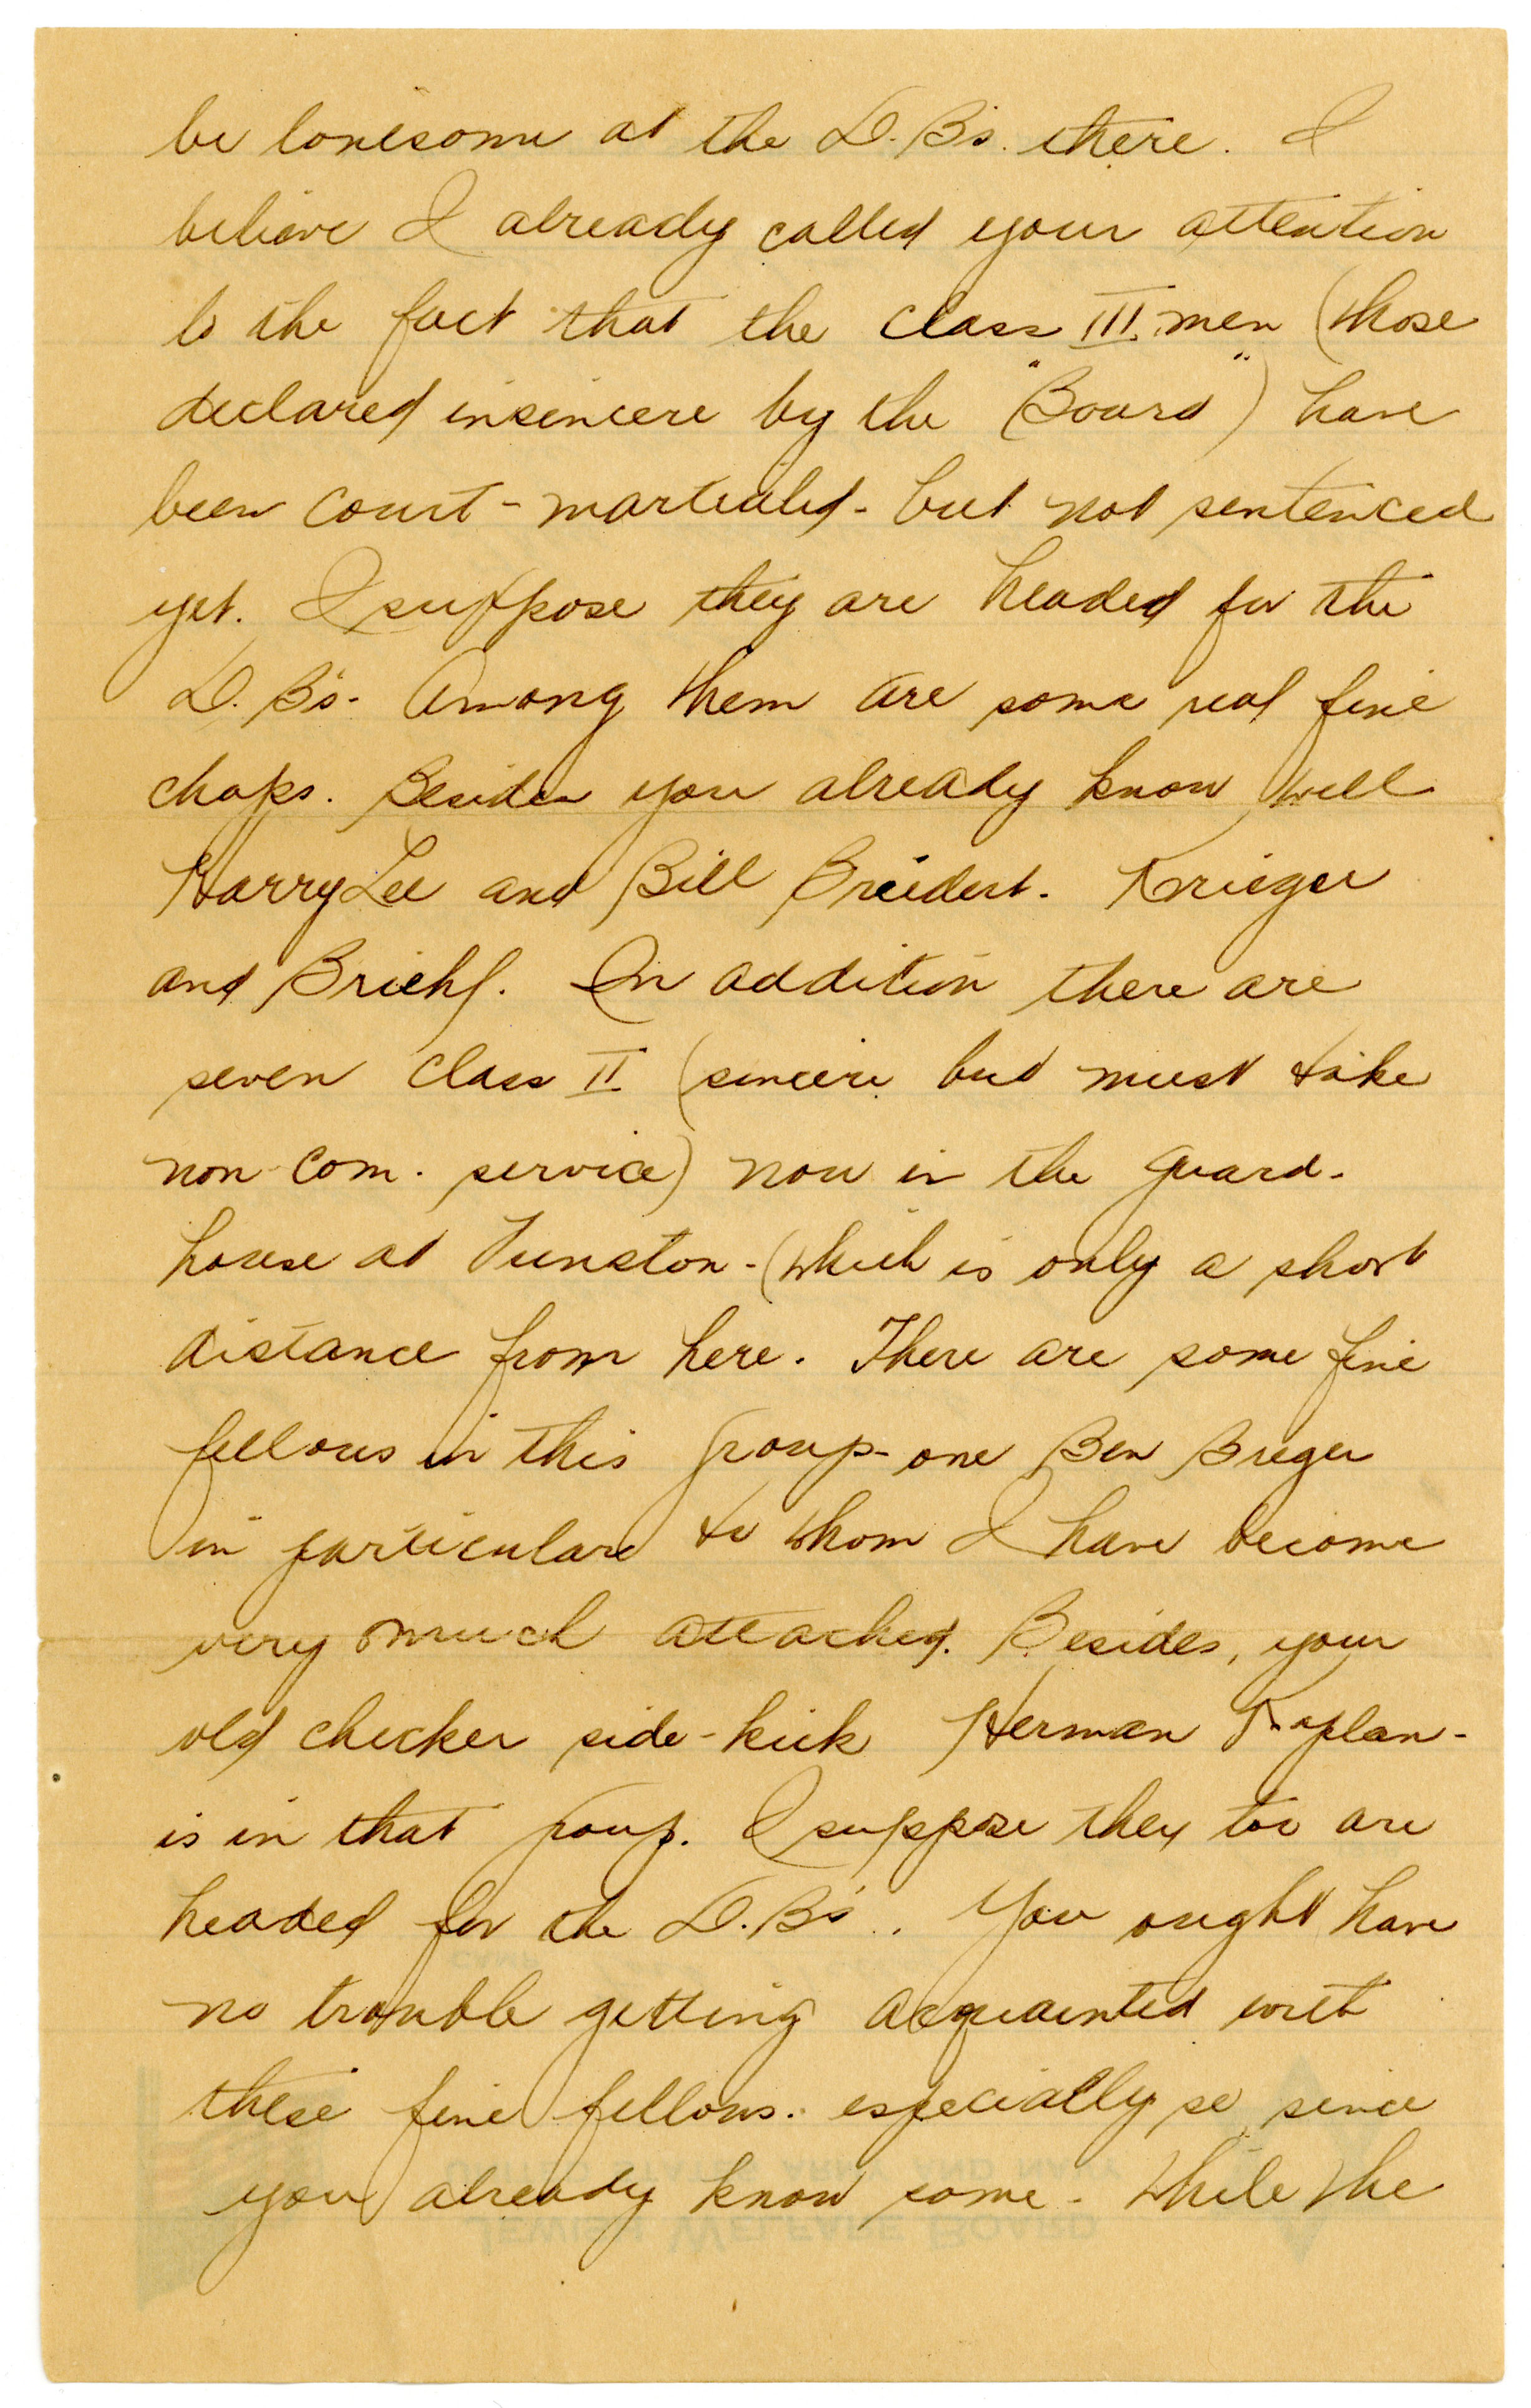 be lonesome at the D.B's. there. I
believe I already called your attention
to the fact that the class III men (those
declared insincere by the "Board") have
been court-martialed - but not sentenced
yet. I suppose they are headed for the
D.B's - Among them are some real fine
chaps. Besides you already know well
Harry Lee and Bill Breidert. Krieger
and Briehl. In addition there are
seven class II (sincere but must take
non-com. service) now in the guard-
house at Funston - (which is only a short
distance from here. There are some fine
fellows in this group - one Ben Breger
in particular to whom I have become
very much attached. Besides, your
old checker side-kick Herman Kaplan -
is in that group. I suppose they too are
headed for the D.B's. You ought have
no trouble getting acquainted with
these fine fellows. especially so since
you already know some - While the
UNITED STATES ARMY AND NAVY
JEWISH WELFARE BOARD